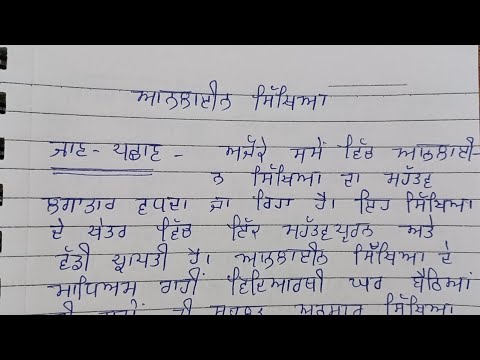 ਆਨਲਾਈਨ ਸਿੱਖਿਆ
ਜਾਣ-ਪਛਾਣ - ਅਜੋਕੇ ਸਮੇਂ ਵਿੱਚ ਆਨਲਾਈ-
ਨ ਸਿੱਖਿਆ ਦਾ ਮਹੱਤਵ
ਲਗਾਤਾਰ ਵਧਦਾ ਜਾ ਰਿਹਾ ਹੈ। ਇਹ ਸਿੱਖਿਆ
ਦੇ ਖੇਤਰ ਵਿੱਚ ਇੱਕ ਮਹੱਤਵਪੂਰਨ ਅਤੇ
ਵੱਡੀ ਕ੍ਰਾਂਤੀ ਹੈ। ਆਨਲਾਈਨ ਸਿੱਖਿਆ ਦੇ
ਮਾਧਿਅਮ ਰਾਹੀਂ ਵਿਦਿਆਰਥੀ ਘਰ ਬੈਠਿਆਂ
ਅਨੁਸਾਰ ਸਿੱਖਿਆ